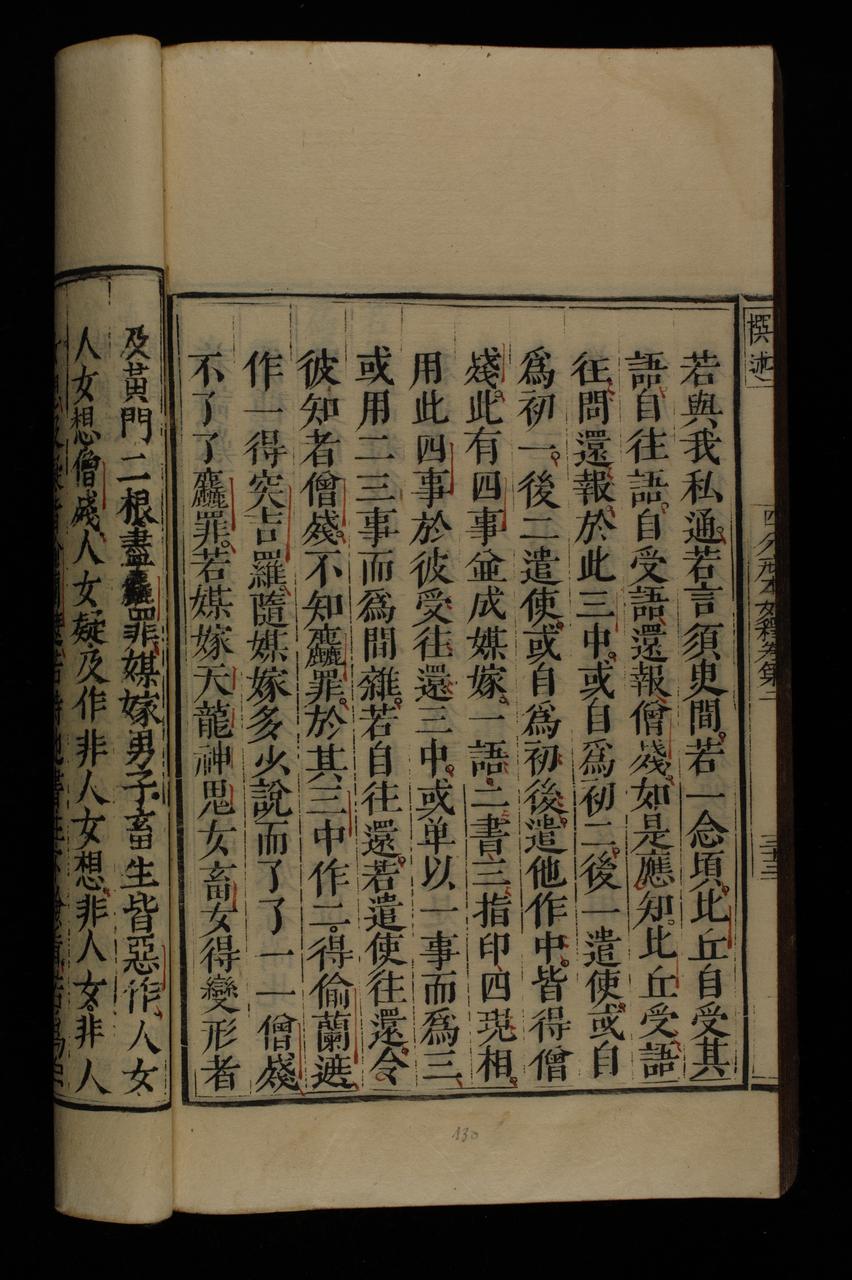 撰述
四分戒本如釋卷第二
三十三
若與我私通若言須臾間若一念頃比丘自受其
語自往語自受語還報僧殘如是應知比丘受語
往問還報於此三中或自爲初二後一遣使或自
爲初一後二遣使或自爲初後遣他作中皆得僧
殘此有四事並成媒嫁一語二書三指印四現相
用此四事於彼受往還三中或单以一事而爲三
或用二三事而爲間雜若自往還若遣使往還令
彼知者僧殘不知麤罪於其三中作二得偷蘭遮
作一得突吉羅隨媒嫁多少說而了了一一僧殘
不了了麤罪若媒嫁天龍神鬼女畜女得變形者
及黃門二根盡麤罪媒嫁男子畜生皆惡作人女
人女想僧殘人女疑及作非人女想非人女非人
130